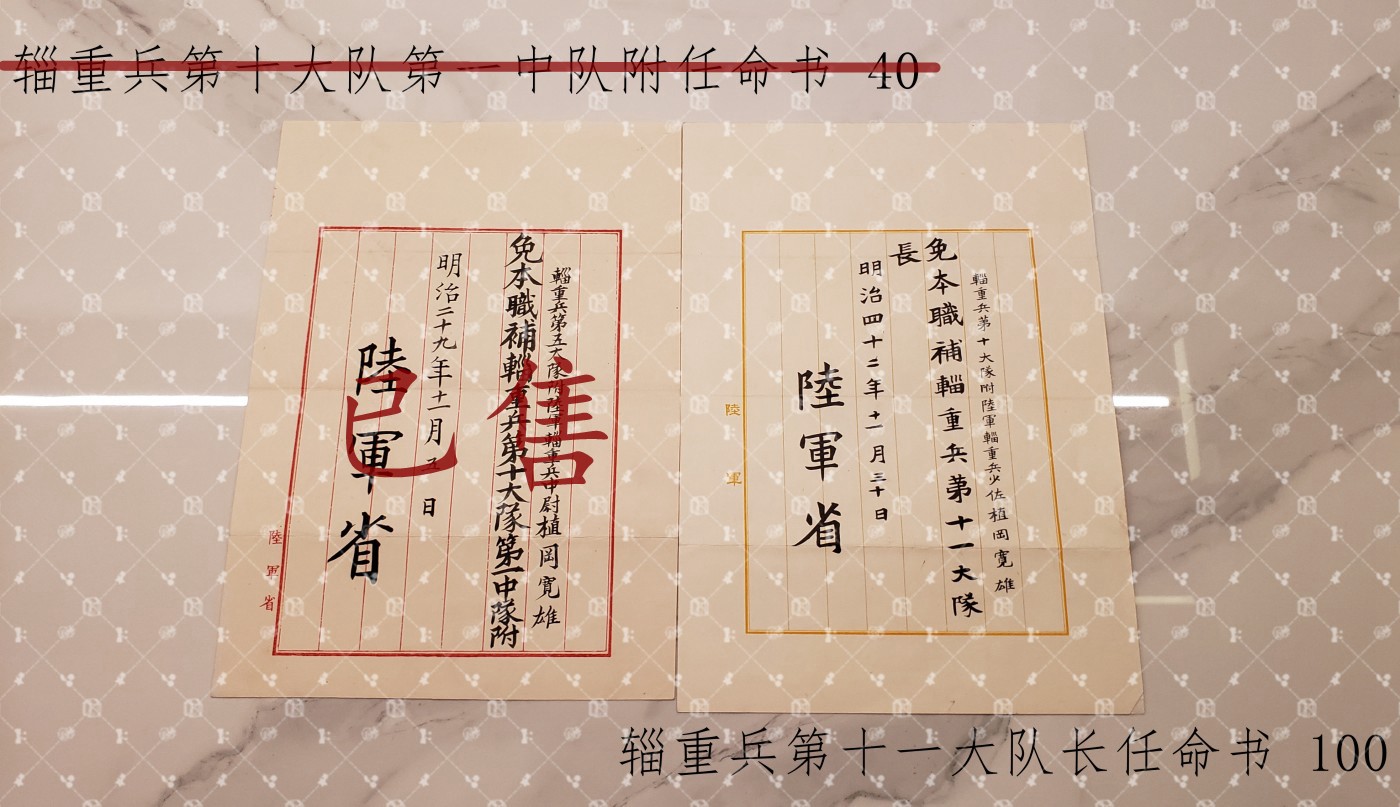 辎重兵第十大队第一中队附任命书 40
輜重兵第五大隊附陸軍輜重兵中尉植岡寛雄
免本職補輜重兵第十大隊第一中隊附
明治二十九年十一月 日
陸軍省
陸軍省
已售
輜重兵第十大隊附陸軍輜重兵少佐植岡寛雄
免本職補輜重兵第十一大隊
長
明治四十二年十一月三十日
陸軍省
陸軍
辎重兵第十一大队长任命书 100